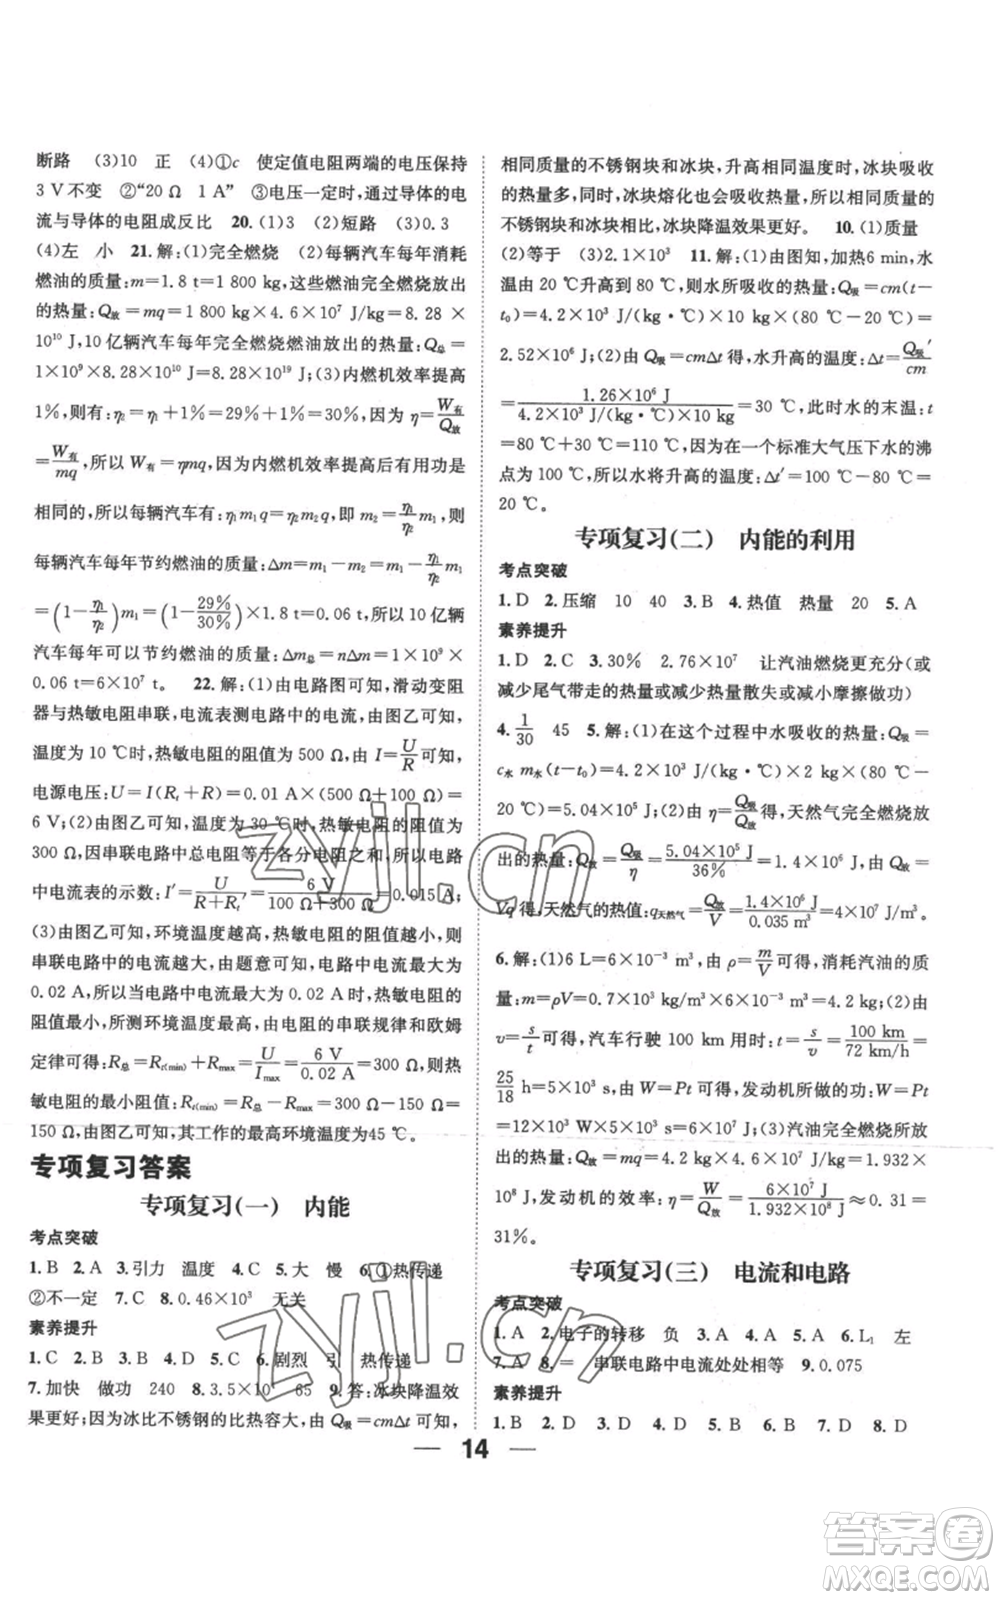 断路 (3)10 正 (4)①c 使定值电阻两端的电压保持
3 V不变 ②“20 Ω 1 A” ③电压一定时,通过导体的电
流与导体的电阻成反比 20. (1)3 (2)短路 (3)0.3
(4)左 小 21. 解:(1)完全燃烧 (2)每辆汽车每年消耗
燃油的质量:m=1.8 t=1 800 kg,这些燃油完全燃烧放
出的热量:Q放=mq=1 800 kg×4.6×10⁷ J/kg=8.28 ×
10¹⁰ J,10亿辆汽车每年完全燃烧燃油放出的热量:Q总=
1×10⁹×8.28×10¹⁰ J=8.28×10¹⁹ J;(3)内燃机效率提高
1%,则有:η₂=η₁+1%=29%+1%=30%,因为 η=W有/Q放
=W有/mq,所以 W有=ηmq,因为内燃机效率提高前后有用功是
相同的,所以每辆汽车有:η₁m₁q=η₂m₂q,即 m₂=η₁/η₂ m₁,则
每辆汽车每年节约燃油的质量:Δm=m₁-m₂=m₁-η₁/η₂ m₁
=(1-η₁/η₂)m₁=(1-29%/30%)×1.8 t=0.06 t;10亿辆
汽车每年可以节约燃油的质量:Δm总=nΔm=1×10⁹×
0.06 t=6×10⁷ t。 22. 解:(1)由电路图可知,滑动变阻
器与热敏电阻串联,电流表测电路中的电流,由图乙可知,
温度为 10 ℃时,热敏电阻的阻值为 500 Ω,由 I=U/R可得,
电源电压:U=I(Rt+R)=0.01 A×(500 Ω+100 Ω)=
6 V;(2)由图乙可知,温度为 30 ℃时,热敏电阻的阻值为
300 Ω,因串联电路中总电阻等于各分电阻之和,所以电路
中电流表的示数:I′=U/(R+Rt′)=6 V/(100 Ω+300 Ω)=0.015 A;
(3)由图乙可知,环境温度越高,热敏电阻的阻值越小,则
串联电路中的电流越大,由题意可知,电路中电流最大为
0.02 A,所以当电路中电流最大为 0.02 A时,热敏电阻的
阻值最小,所测环境温度最高,由电阻的串联规律和欧姆
定律可得:R总=Rt(min)+Rmax=U/Imax=6 V/0.02 A=300 Ω,则热
敏电阻的最小阻值:Rt(min)=R总-Rmax=300 Ω-150 Ω=
150 Ω,由图乙可知,其工作的最高环境温度为45 ℃。
专项复习答案
专项复习(一) 内能
考点突破
1. B 2. A 3. 引力 温度 4. C 5. 大 慢 6. ①热传递
②不一定 7. C 8. 0.46×10³ 无关
素养提升
1. C 2. B 3. B 4. A 5. C 6. 剧烈 引 热传递
7. 加快 做功 240 8. 3.5×10⁵ 65 9. 答:冰块降温效
果更好;因为冰比不锈钢的比热容大,由 Q吸=cmΔt 可知,
相同质量的不锈钢块和冰块,升高相同温度时,冰块吸收
的热量多,同时,冰块熔化也会吸收热量,所以,相同质量的
不锈钢块和冰块相比,冰块降温效果好。 10. (1)质量
(2)等于 (3)2.1×10³ 11. (1)由图知,加热6 min,水温
由 20 ℃升高到 80 ℃,则水所吸收的热量:Q吸=cm(t-
t₀)=4.2×10³ J/(kg·℃)×10 kg×(80 ℃-20 ℃)=
2.52×10⁶ J;(2)由 Q吸=cmΔt 得,水升高的温度:Δt=Q吸′/cm
=1.26×10⁶ J/(4.2×10³ J/(kg·℃)×10 kg)=30 ℃,此时水的末温:t
=80 ℃+30 ℃=110 ℃,因为在一个标准大气压下水的沸
点为 100 ℃,所以水将升高的温度:Δt′=100 ℃-80 ℃=
20 ℃。
专项复习(二) 内能的利用
考点突破
1. D 2. 压缩 10 40 3. B 4. 热值 热量 20 5. A
素养提升
1. D 2. C 3. 30% 2.76×10⁷ 让汽油燃烧更充分(或
减少尾气带走的热量或减少热量散失或减小摩擦做功)
4. 1/30 45 5. 解:(1)在这个过程中水吸收的热量:Q吸
=c水 m水(t-t₀)=4.2×10³ J/(kg·℃)×2 kg×(80 ℃
-20 ℃)=5.04×10⁵ J;(2)由 η=Q吸/Q放得,天然气完全燃烧放
出的热量:Q放=Q吸/η=5.04×10⁵ J/36%=1.4×10⁶ J,由 Q放=
Vq得,天然气的热值:q天然气=Q放/V=1.4×10⁶ J/0.035 m³=4×10⁷ J/m³。
6. 解:(1)6 L=6×10⁻³ m³,由 ρ=m/V可得,消耗汽油的质
量:m=ρV=0.7×10³ kg/m³×6×10⁻³ m³=4.2 kg;(2)由
v=s/t可得,汽车行驶 100 km 用时:t=s/v=100 km/72 km/h=
25/18 h=5×10³ s,由 W=Pt 可得,发动机所做的功:W=Pt
=12×10³ W×5×10³ s=6×10⁷ J;(3)汽油完全燃烧所放
出的热量:Q放=mq=4.2 kg×4.6×10⁷ J/kg=1.932×
10⁸ J,发动机的效率:η=W/Q放=6×10⁷ J/1.932×10⁸ J≈0.31=
31%。
专项复习(三) 电流和电路
考点突破
1. A 2. 电子的转移 负 3. A 4. A 5. A 6. L₁ 左
7. A 8. = 串联电路中电流处处相等 9. 0.075
素养提升
1. B 2. D 3. B 4. B 5. C 6. B 7. D 8. D
14
zyjl.cn
zyjl.cn
答案圈
MXQE.COM